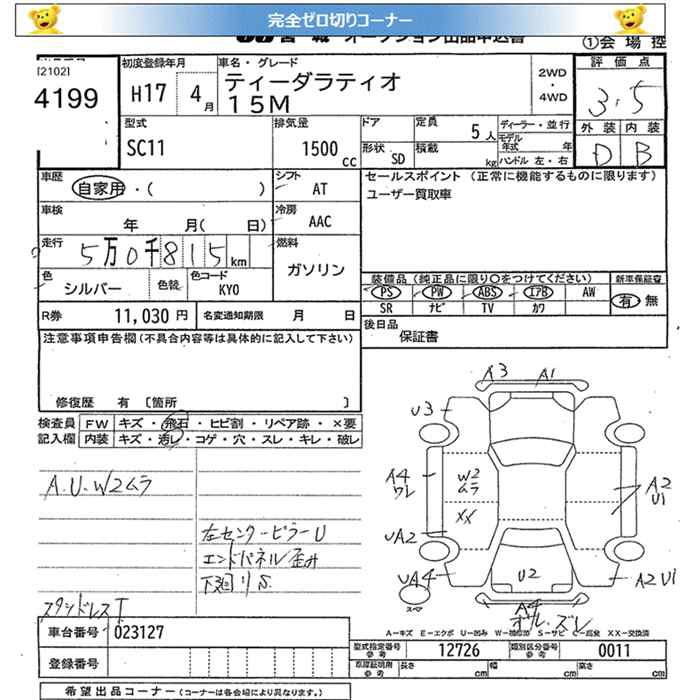 完全ゼロ切りコーナー
宮城 オークション出品申込書
①会場控
[2102]
4199
初度登録年月
H17 4月
車名・グレード
ティーダラティオ
15M
2WD
・
4WD
評価点
3.5
外装 内装
D B
型式
SC11
排気量
1500cc
ドア
形状 SD
定員 5人
積載 kg
ディーラー・並行
モデル年式 年
ハンドル 左・右
車歴
自家用・( )
シフト
AT
セールスポイント (正常に機能するものに限ります)
ユーザー買取車
車検
年 月( 日)
冷房
AAC
走行
5万0千815km
燃料
ガソリン
色
シルバー
色替
色コード
KY0
装備品 (純正品に限り○をつけてください)
新車保証書
PS PW ABS エアB AW
有・無
SR ナビ TV カワ
R券 11,030円
名変通知期限 月 日
後日品
保証書
注意事項申告欄(不具合内容等は具体的に記入して下さい)
修復歴 有 〔箇所 〕
検査員
記入欄
FW キズ・飛石・ヒビ割・リペア跡・×要
内装 キズ・汚レ・コゲ・穴・スレ・キレ・破レ
A.U.W2ムラ
左センターピラーU
エンドパネル歪み
下廻りS
スタッドレスT
A3 A1
U3
A4
ワレ
W2
ムラ
XX
A2
U1
UA2
UA4
U2
A2 U1
スペア
A4
オール・ズレ
A−キズ E−エクボ U−凹み W−補修跡 S−サビ C−腐食 XX−交換済
車台番号 023127
登録番号
型式指定番号
参考
12726
類別区分番号
参考
0011
車庫証明用
参考
長さ cm 幅 cm 高さ cm
希望出品コーナー (コーナーは各会場により異なります。)